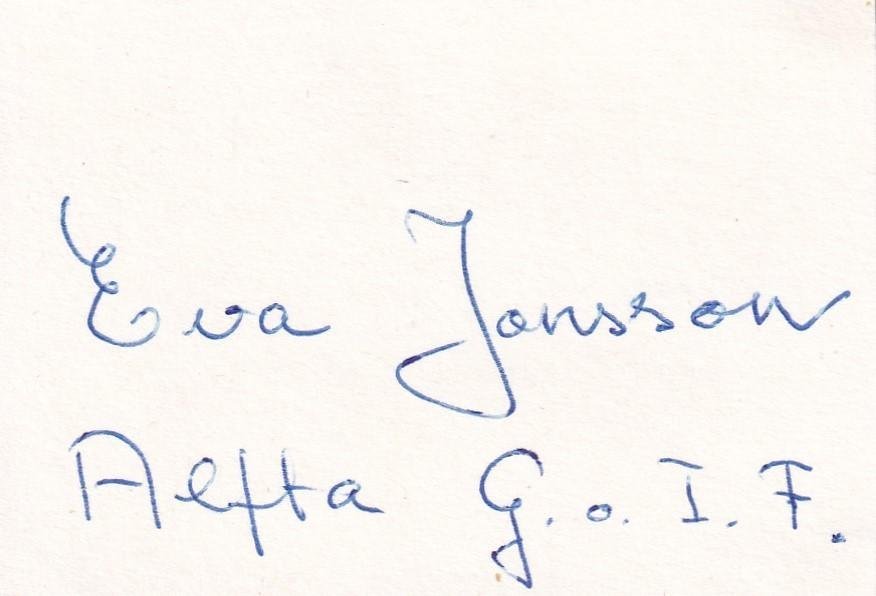 Eva Jonsson
Alfta G. o. I. F.